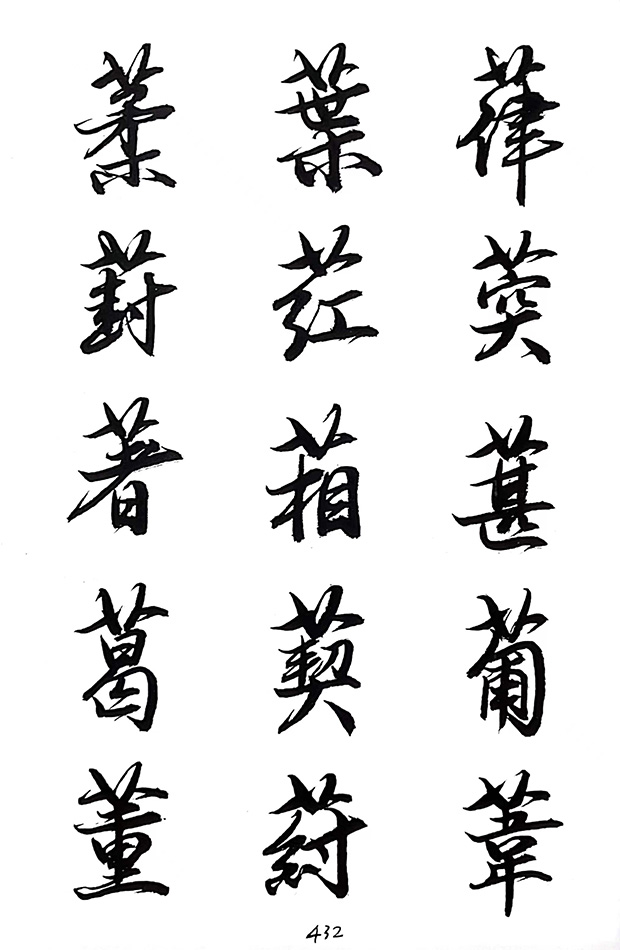 葇 葉 葎
葑 葒 葖
著 葙 葚
葛 葜 葡
董 葤 葦
432